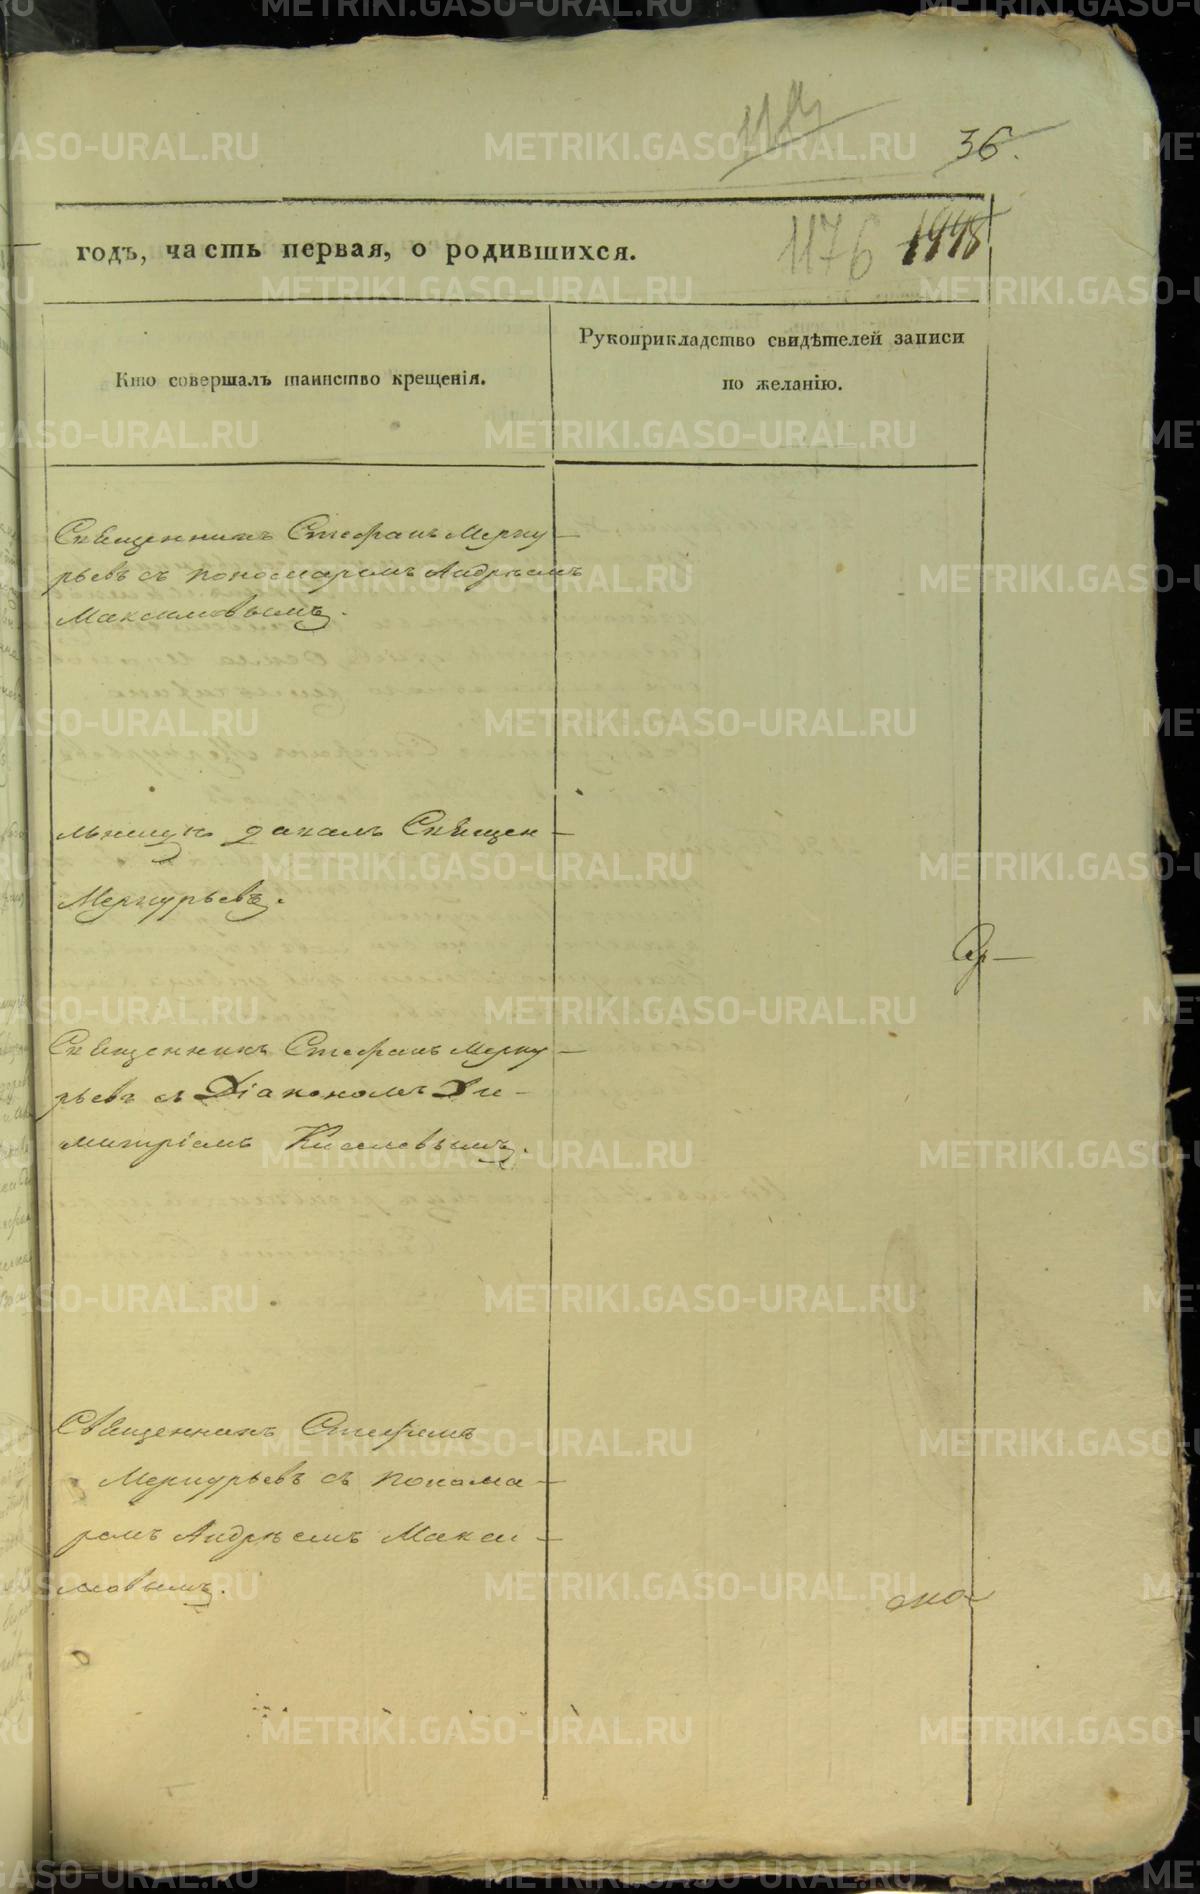 36.
годъ, часть первая, о родившихся.
1176
Кто совершалъ таинство крещенія.
Рукоприкладство свидѣтелей записи
по желанію.
Священникъ Стефанъ Мерку-
рьевъ съ пономаремъ Андрѣемъ
Максимовымъ.
Священ-
Меркурьевъ.
Священникъ Стефанъ Мерку-
рьевъ съ Діакономъ Ди-
митріемъ Киселевымъ.
Священникъ Стефанъ
Меркурьевъ съ понома-
ремъ Андрѣемъ Макси-
мовымъ.
METRIKI.GASO-URAL.RU